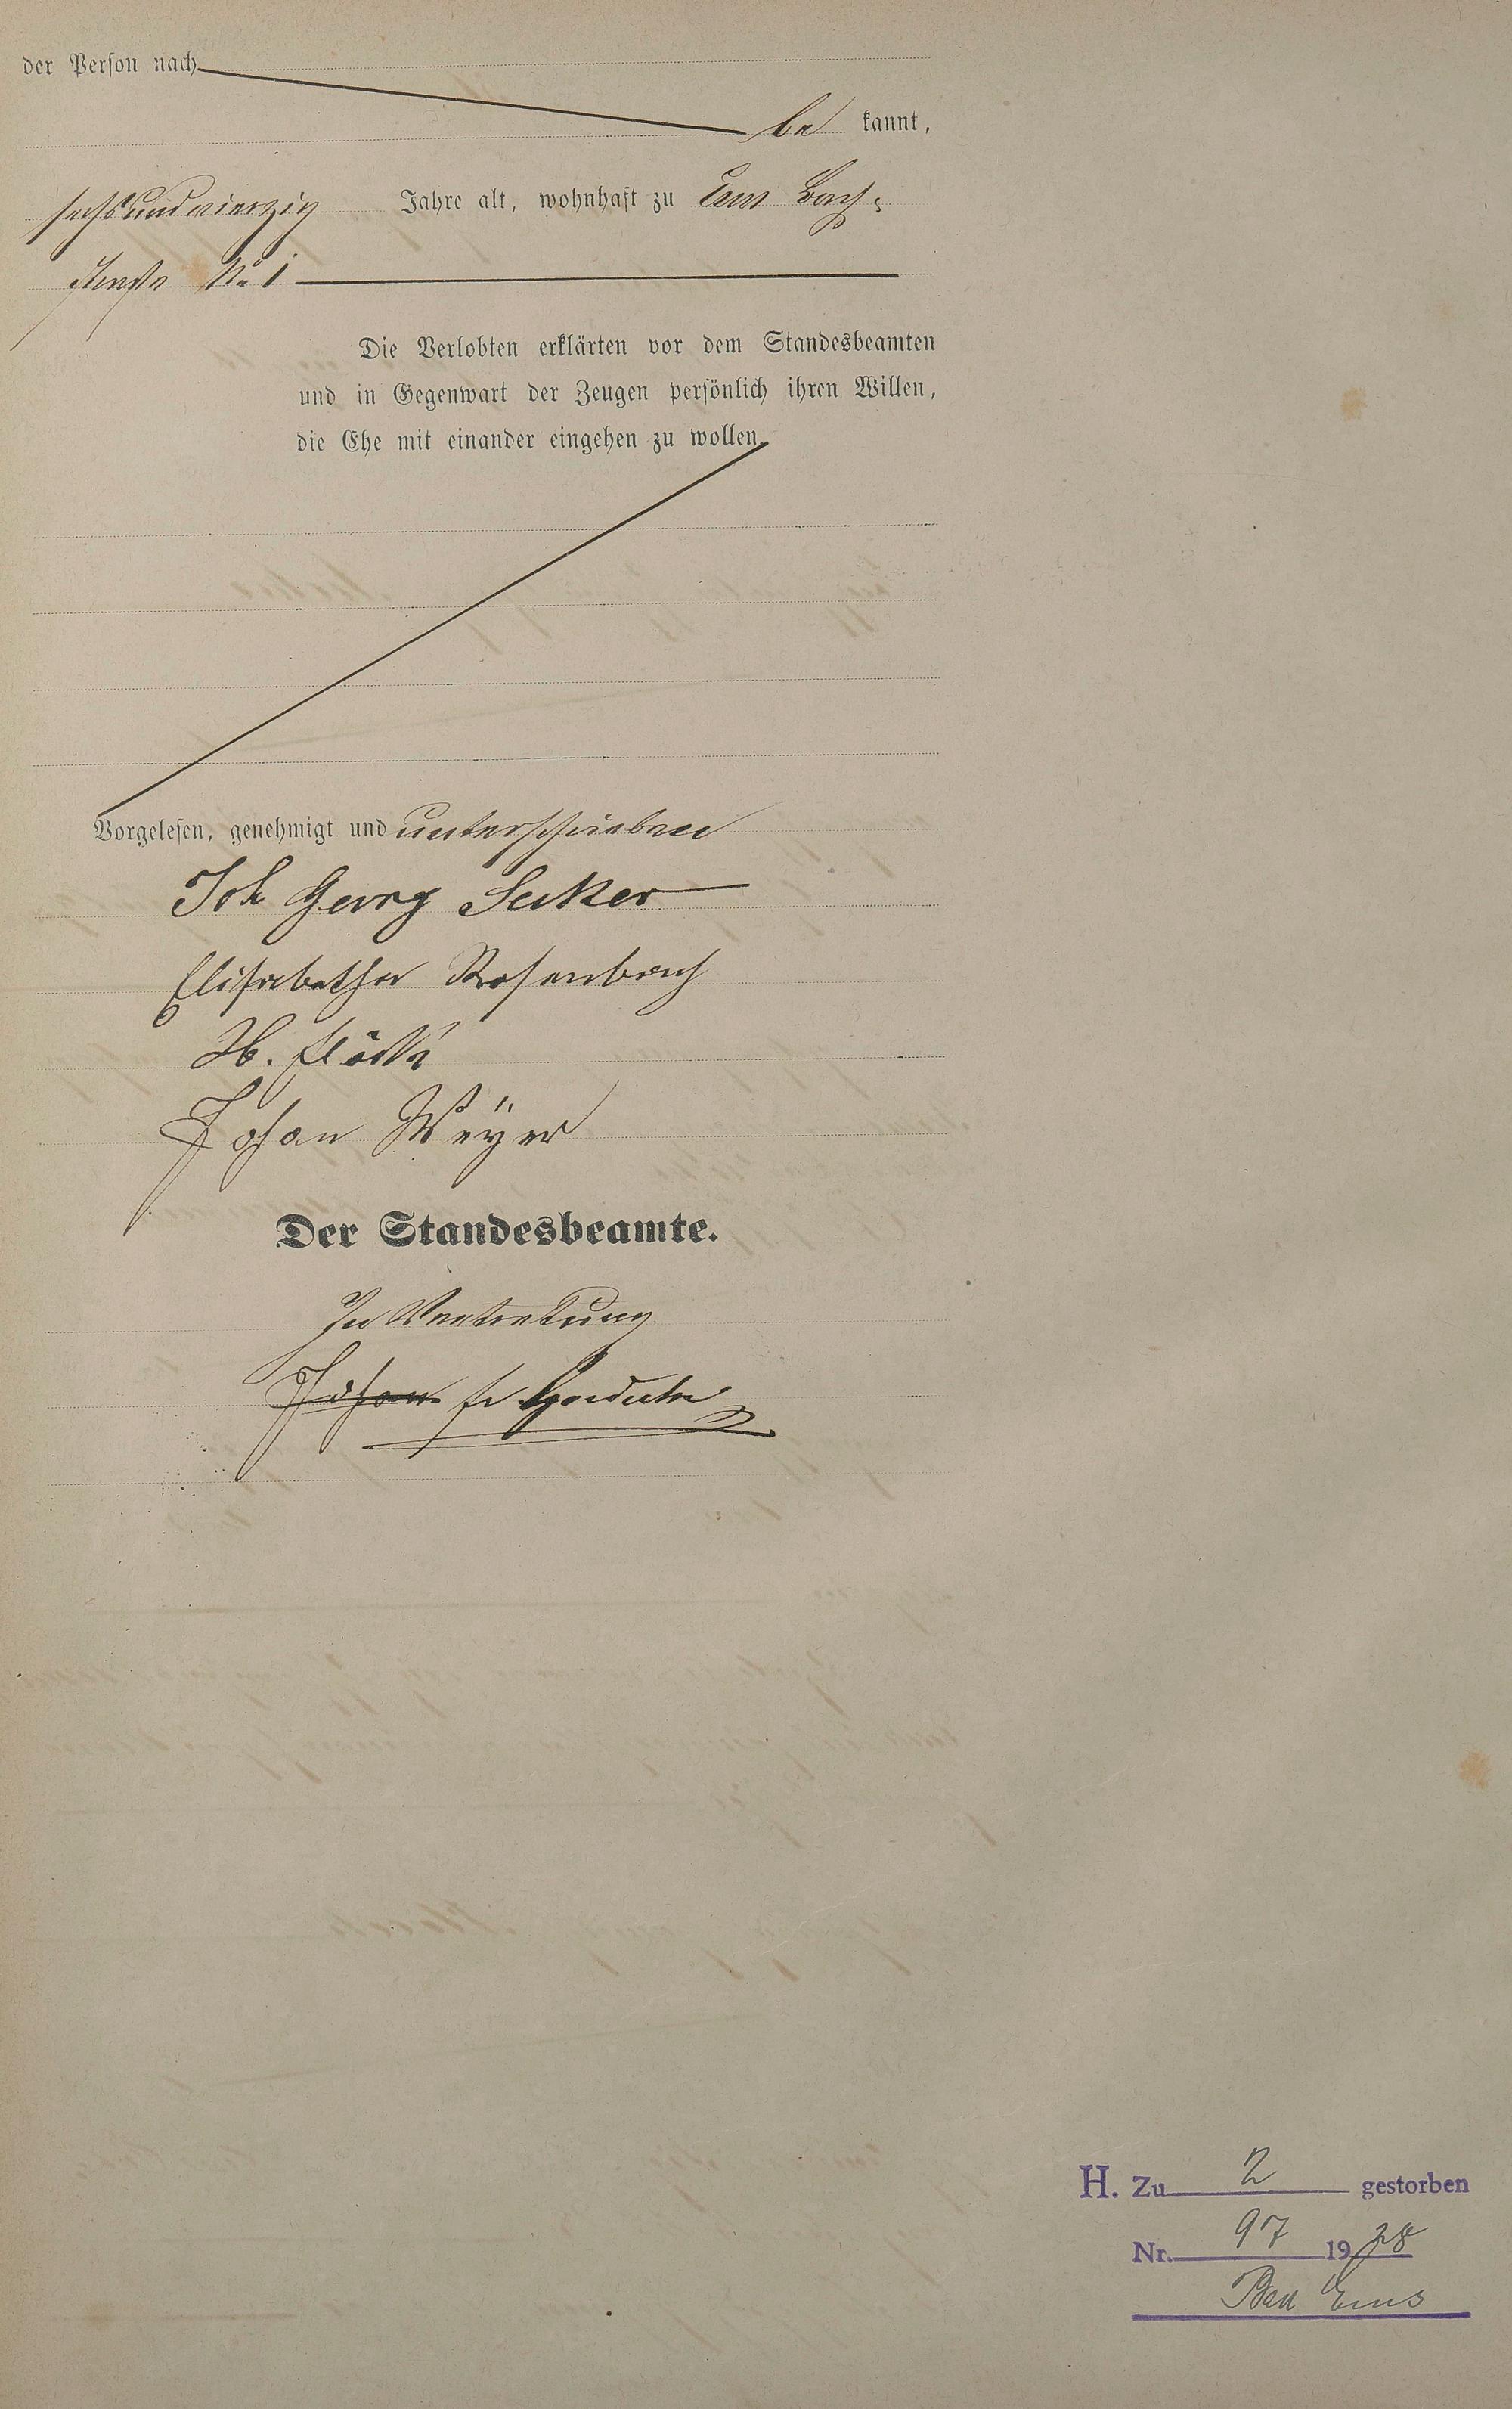 der Person nach
be kannt,
sechsundvierzig Jahre alt, wohnhaft zu Ems Bach-
straße No 1
Die Verlobten erklärten vor dem Standesbeamten
und in Gegenwart der Zeugen persönlich ihren Willen,
die Ehe mit einander eingehen zu wollen.
Vorgelesen, genehmigt und unterschrieben
Joh Georg
Elisabetha Rosenbach
H. Flöck
Johan Weÿer
Der Standesbeamte.
In Vertretung
H. Zu 2 gestorben
Nr. 97 1928
Bad Ems